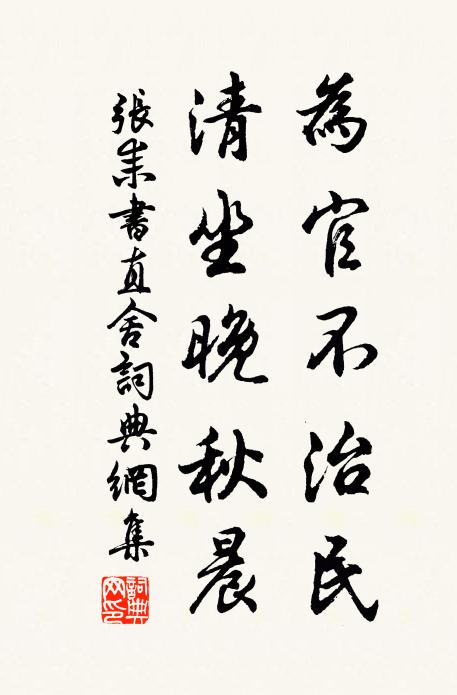 為官不治民
清坐晚秋晨
張耒書直舍詞典網集
詞典網印